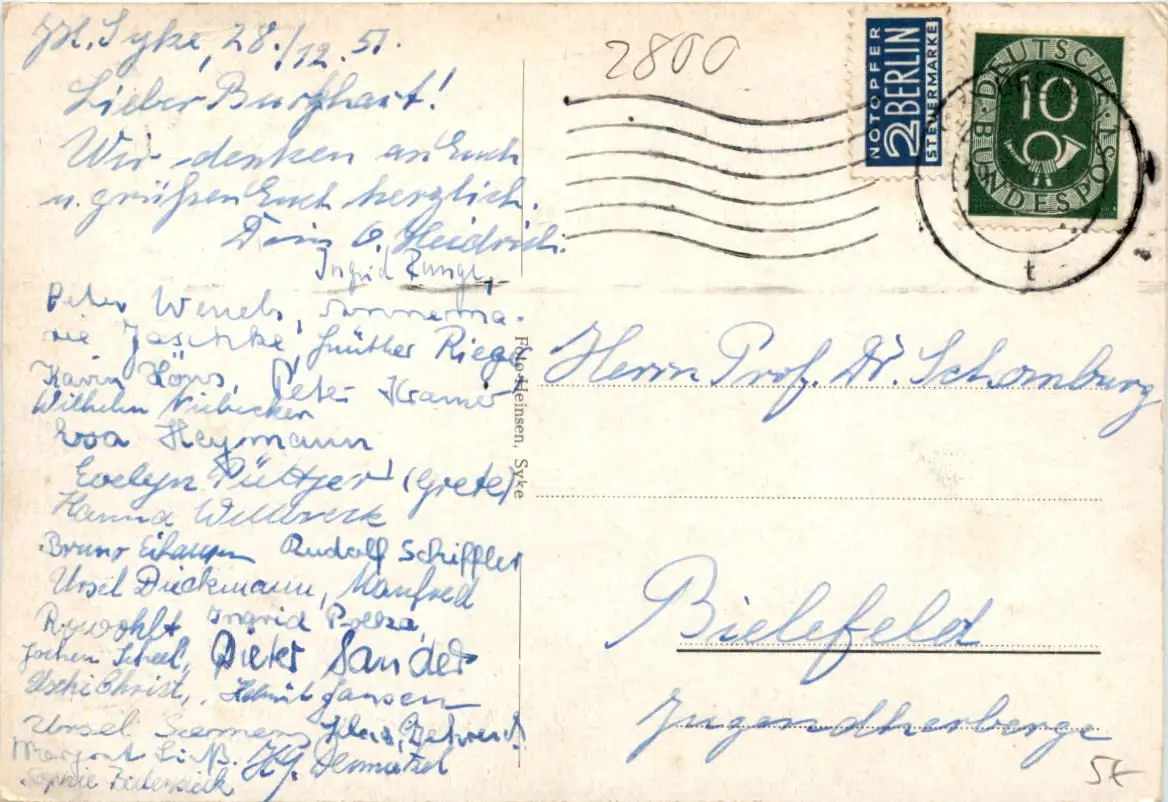 Syke, 28./12.51.
Lieber Burghart!
Wir denken an Euch
u. grüßen Euch herzlich.
O. Heidrich.
Ingrid Runge,
Peter Wenels, Annema-
rie Jaschke, Günther Riege
Karin Köns, Peter Kramer
Wilhelm
Eva Heymann
Evelyn Püttjer (Grete)
Hanna Willbreck
Bruno Rudolf Schiffler
Ursel Dieckmann, Manfred
Rowohlt Ingrid
Jochen Scheel, Dieter Sander
Uschi Christ, Helmut Jansen
Ursel Siemens,
Margret
Sophie
Foto-Heinsen, Syke
2800
NOTOPFER
2 BERLIN
STEUERMARKE
DEUTSCHE BUNDESPOST
10
t
Herrn Prof. Dr. Schomburg
Bielefeld
Jugendherberge